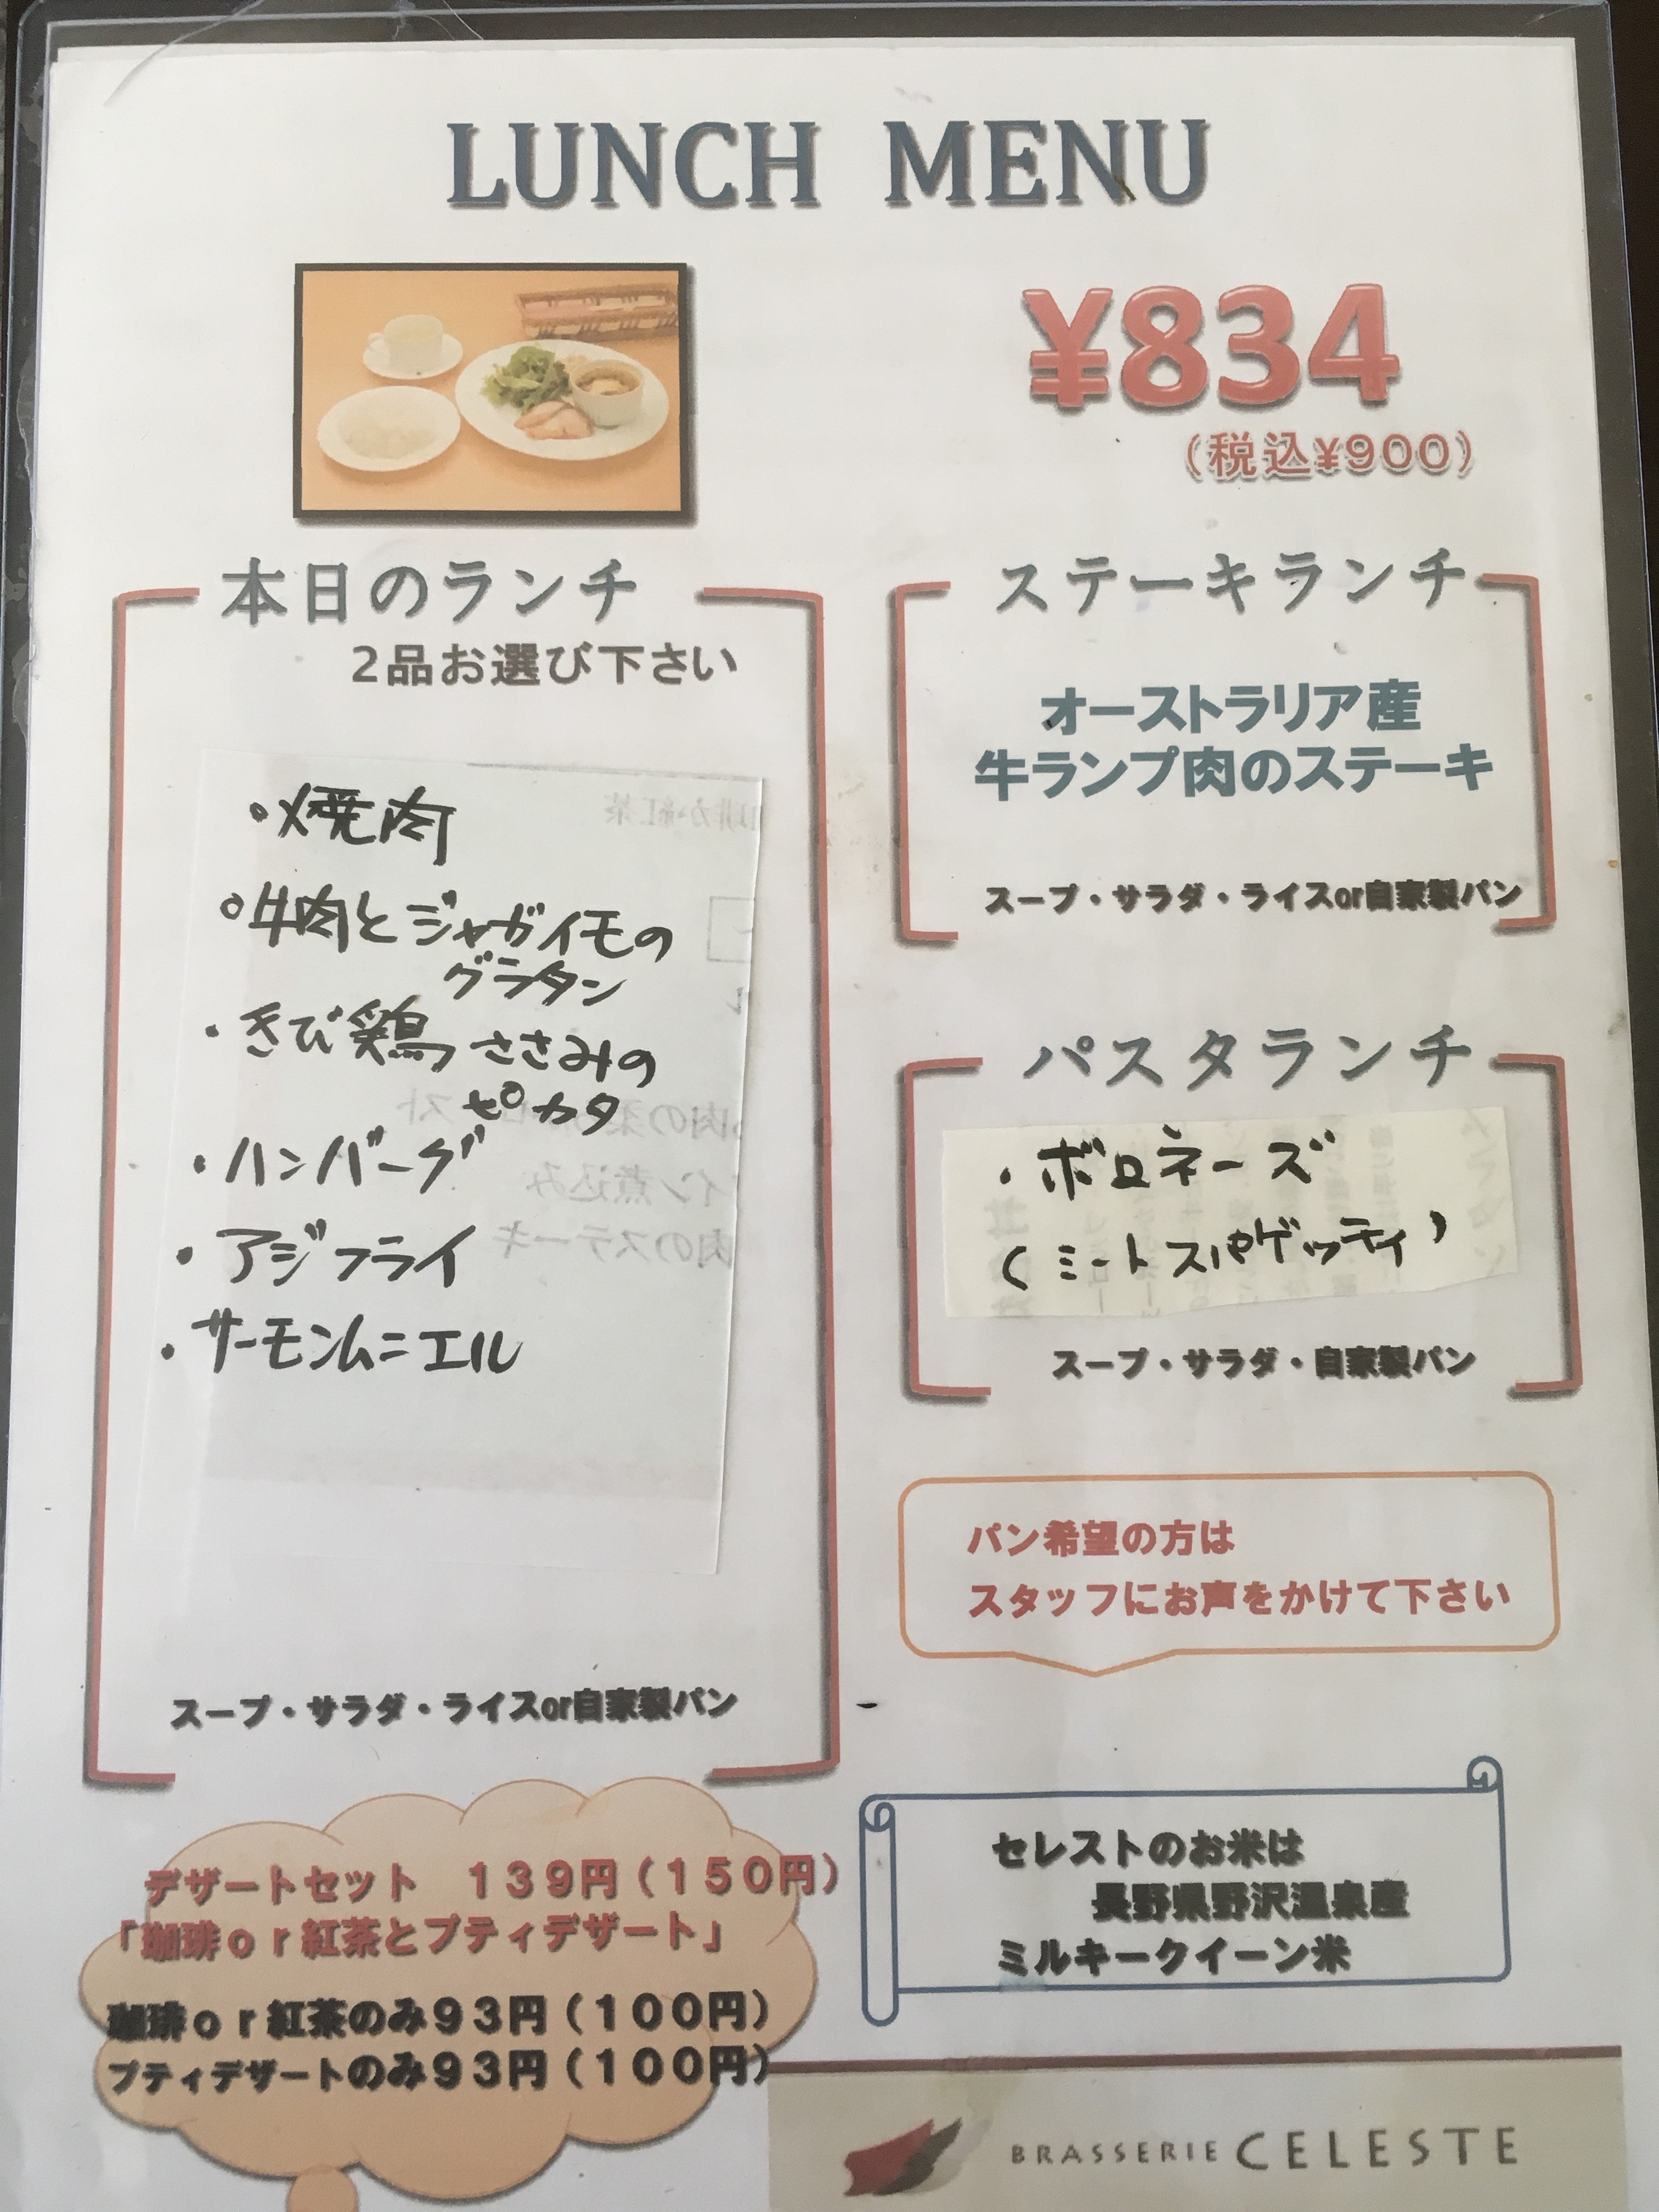 LUNCH MENU
¥834
（税込¥900）
本日のランチ
2品お選び下さい
・焼肉
・牛肉とジャガイモの
グラタン
・きび鶏ささみの
ピカタ
・ハンバーグ
・アジフライ
・サーモンムニエル
スープ・サラダ・ライスor自家製パン
ステーキランチ
オーストラリア産
牛ランプ肉のステーキ
スープ・サラダ・ライスor自家製パン
パスタランチ
・ボロネーズ
（ミートスパゲッティ）
スープ・サラダ・自家製パン
パン希望の方は
スタッフにお声をかけて下さい
デザートセット　139円（150円）
「珈琲or紅茶とプティデザート」
珈琲or紅茶のみ93円（100円）
プティデザートのみ93円（100円）
セレストのお米は
長野県野沢温泉産
ミルキークイーン米
BRASSERIE CELESTE